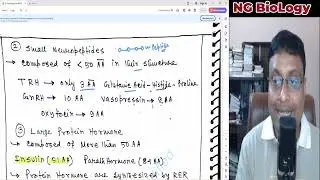 NG BioLogy
② Small Neuropeptides
→ composed of < 50 AA in their structure
TRH → only 3 AA Glutamic Acid - Histidine - Proline
GnRH → 10 AA Vasopressin → 9 AA
Oxytocin → 9 AA
③ Large Protein Hormone
→ composed of More than 50 AA
Insulin (51 AA) Parath Hormone (84 AA)
→ Protein Hormone are synthesized by RER